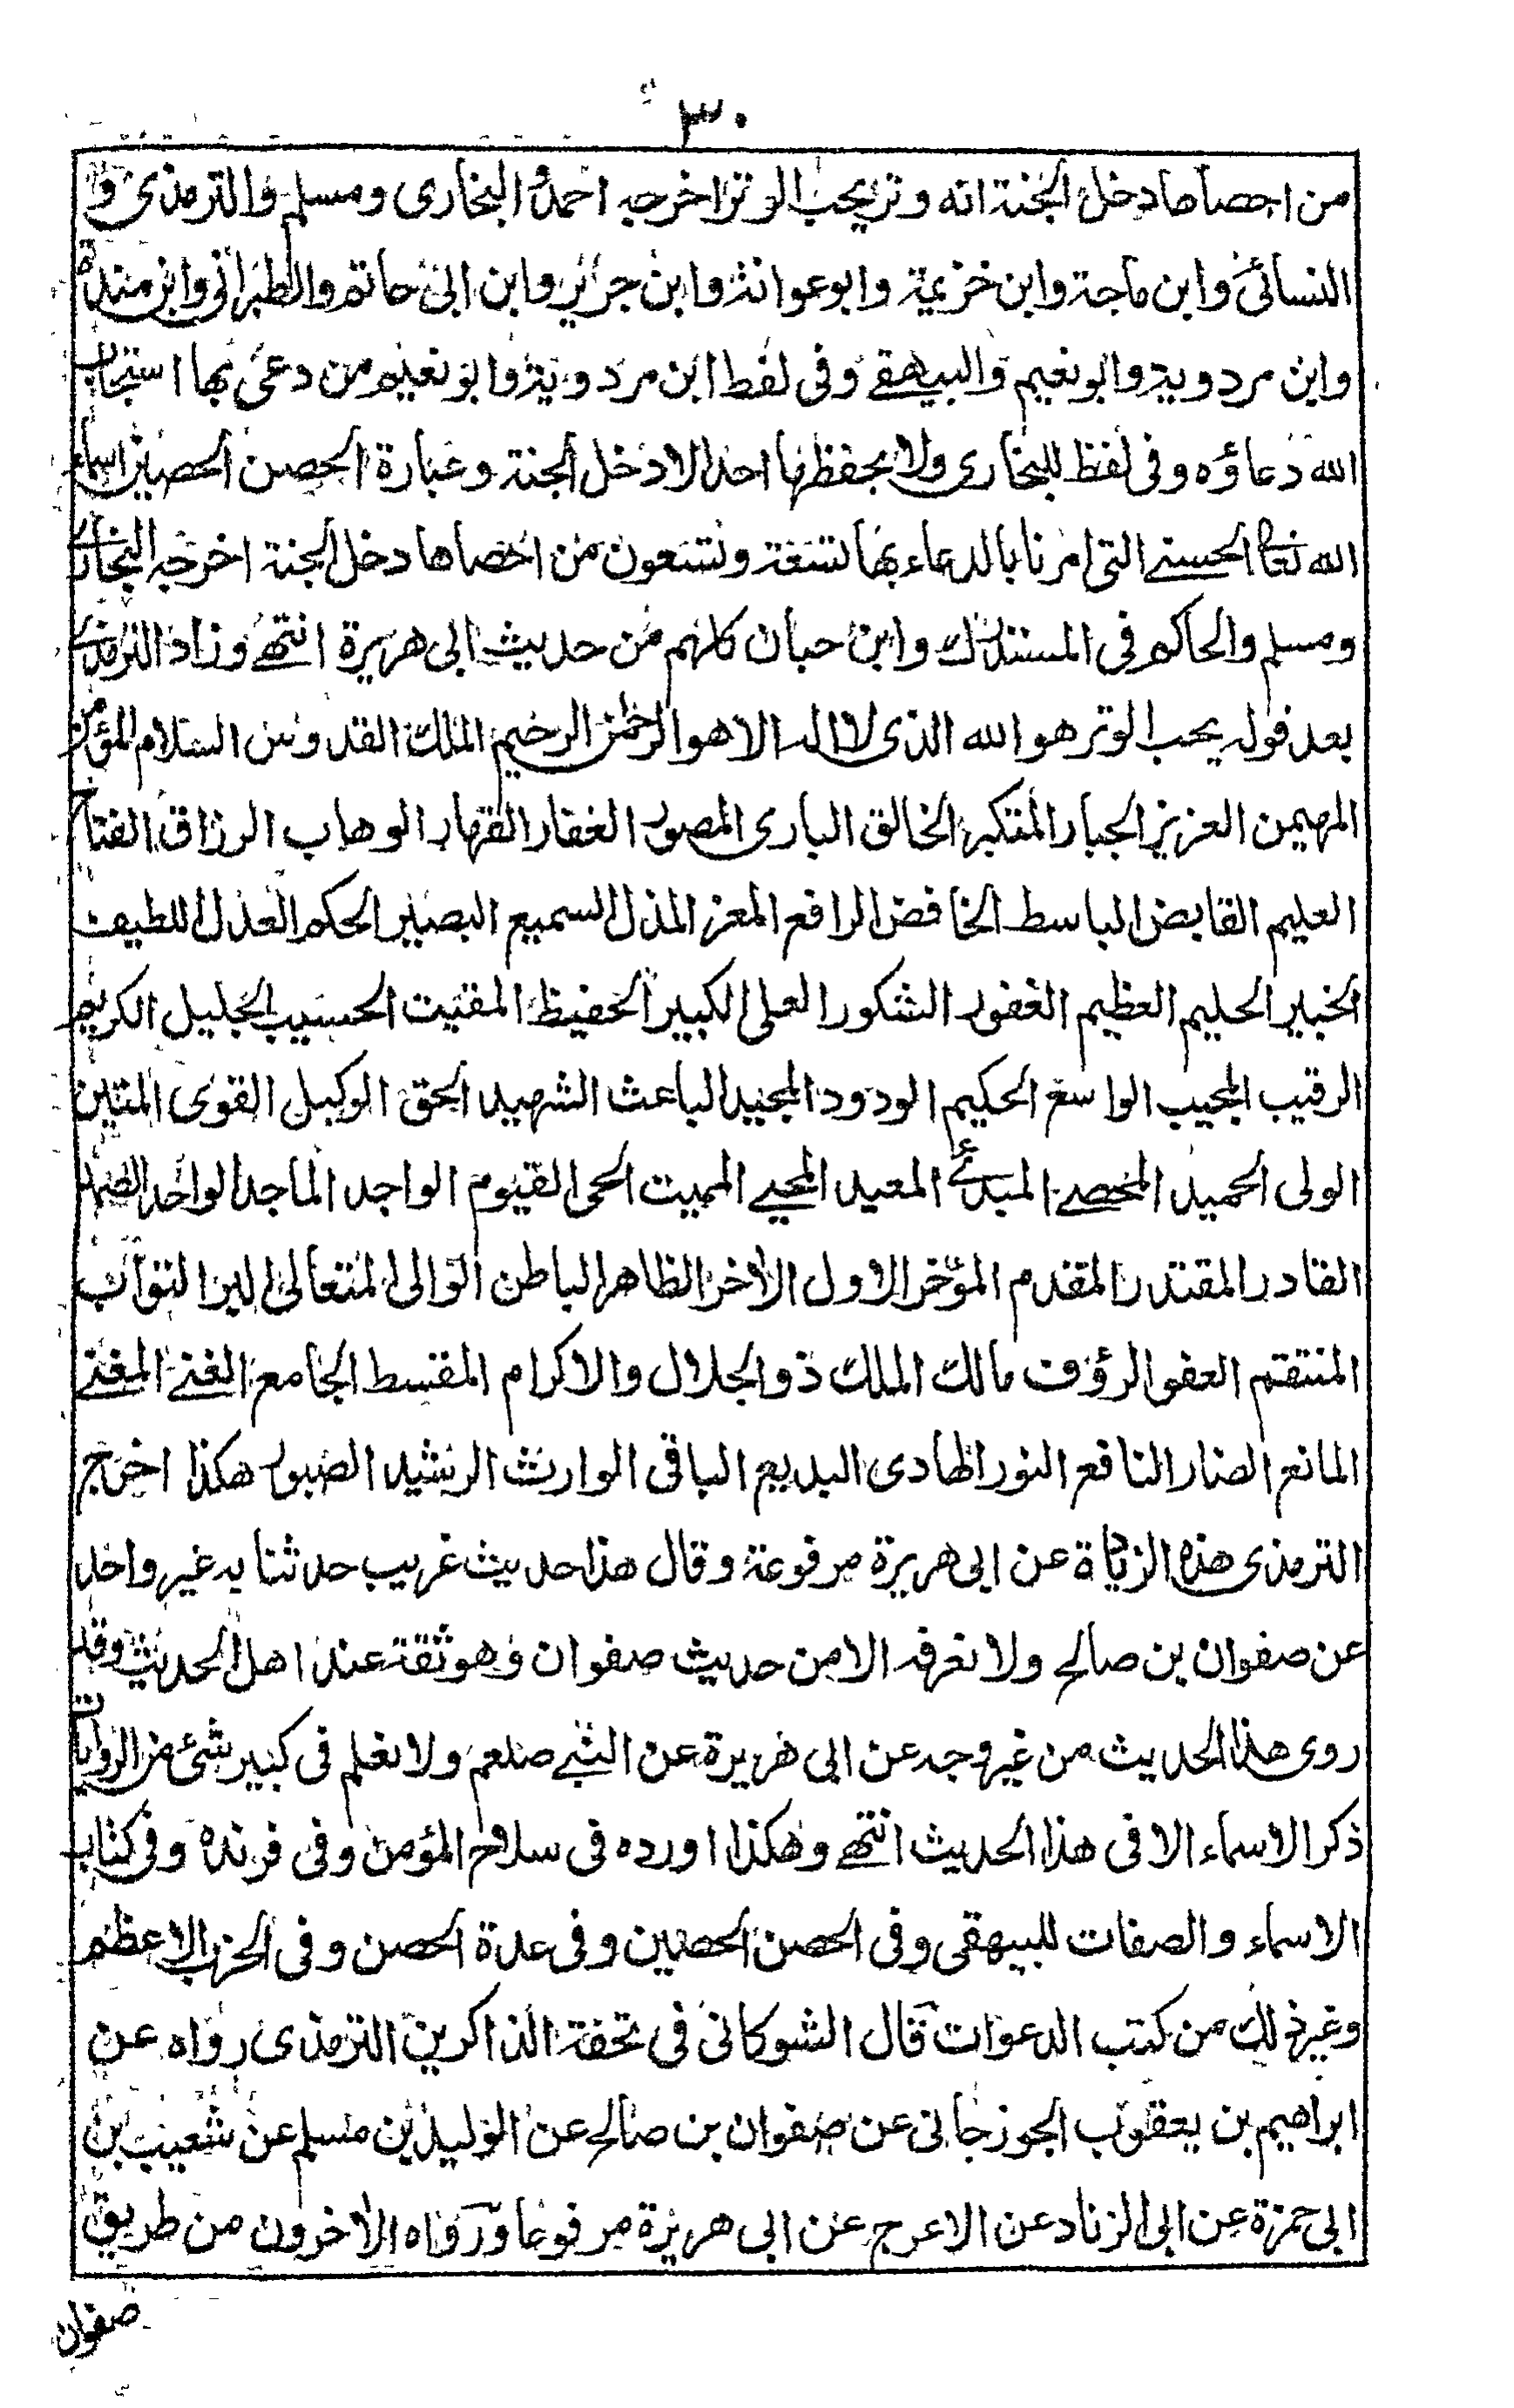 ٣٠
من احصاها دخل الجنة انه وتر يحب الوتر اخرجه احمد والبخارى ومسلم والترمذى و
النسائى وابن ماجة وابن خزيمة وابو عوانة وابن جرير وابن ابى حاتم والطبرانى وابن مندة
وابن مردويه وابو نعيم والبيهقے وفى لفط ابن مردويه وابو نعيم من دعى بها استجاب
الله دعاؤه وفى لفظ للبخارى ولا يحفظها احد الا دخل الجنة وعبارة الحصن الحصين اسماء
الله تعا الحسنے التى امرنا بالدعاء بها تسعة وتسعون من احصاها دخل الجنة اخرجه البخارى
ومسلم والحاكم فى المستدرك وابن حبان كلهم من حديث ابى هريرة انتهے وزاد الترمذى
بعد قوله يحب الوتر هو الله الذى لا اله الا هو الرحمن الرحيم الملك القدوس السلام المؤمن
المهيمن العزيز الجبار المتكبر الخالق البارى المصور الغفار القهار الوهاب الرزاق الفتاح
العليم القابض الباسط الخافض الرافع المعز المذل السميع البصير الحكم العدل اللطيف
الخبير الحليم العظيم الغفور الشكور العلى الكبير الحفيظ المقيت الحسيب الجليل الكريم
الرقيب المجيب الواسع الحكيم الودود المجيد الباعث الشهيد الحق الوكيل القوى المتين
الولى الحميد المحصے المبدئ المعيد المحيے المميت الحى القيوم الواجد الماجد الواحد الصمد
القادر المقتدر المقدم المؤخر الاول الاخر الظاهر الباطن الوالى المتعالى البر التواب
المنتقم العفو الرؤف مالك الملك ذو الجلال والاكرام المقسط الجامع الغنے المغنے
المانع الضار النافع النور الهادى البديع الباقى الوارث الرشيد الصبور هكذا اخرج
الترمذى هذه الزيادة عن ابى هريرة مرفوعة وقال هذا حديث غريب حدثنا به غير واحد
عن صفوان بن صالح ولا نعرفه الا من حديث صفوان وهو ثقة عند اهل الحديث وقد
روى هذا الحديث من غير وجه عن ابى هريرة عن النبے صلعم ولا نعلم فى كبير شئ من الروايات
ذكر الاسماء الا فى هذا الحديث انتهے وهكذا اورده فى سلاح المؤمن وفى فرنده وفى كتاب
الاسماء والصفات للبيهقى وفى الحصن الحصين وفى عدة الحصن وفى الحزب الاعظم
وغير ذلك من كتب الدعوات قال الشوكانى فى تحفة الذاكرين الترمذى رواه عن
ابراهيم بن يعقوب الجوزجانى عن صفوان بن صالح عن الوليد بن مسلم عن شعيب بن
ابى حمزة عن ابى الزناد عن الاعرج عن ابى هريرة مرفوعا ورواه الاخرون من طريق
صفوان